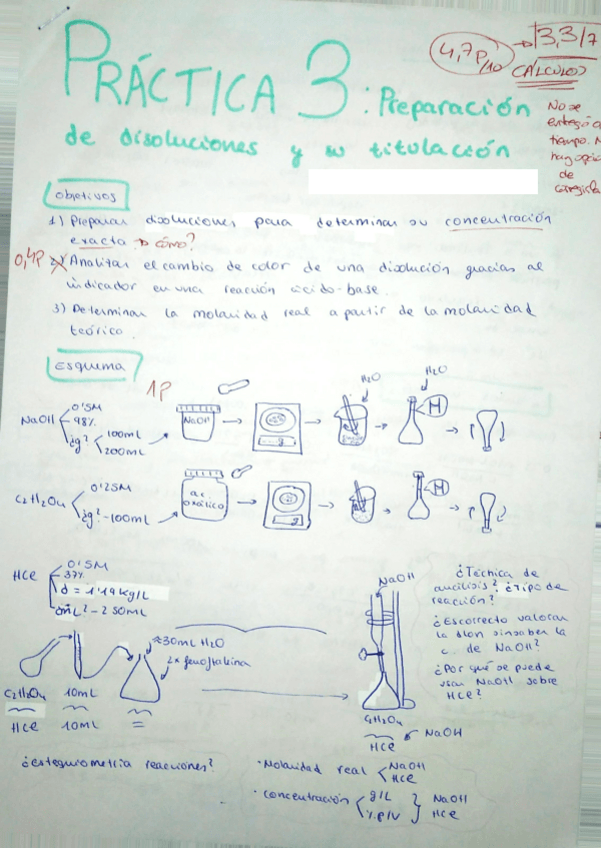 4,7p/10 → 3,3/7
CÁLCULOS
PRÁCTICA 3: Preparación
de disoluciones y su titulación
No se
entregó a
tiempo. N
hay opció
de
corregirla
Objetivos
1) Preparar disoluciones para determinar su concentración
exacta → cómo?
0,4p
2) Analizar el cambio de color de una disolución gracias al
indicador en una reacción ácido-base.
3) Determinar la molaridad real a partir de la molaridad
teórico.
Esquema
1P
H2O
H2O
NaOH
0'5M
98%
¿g?
100mL
200mL
NaOH
C2H2O4
0'25M
¿g? - 100mL
ac
oxálico
HCl
0'5M
37%
d = 1'19 kg/L
¿mL? - 250mL
≈30mL H2O
2x fenoftaleina
C2H2O4 10mL
HCl 10mL =
NaOH
¿Técnica de
análisis? ¿Tipo de
reacción?
¿Es correcto valorar
la dlon sin saber la
c de NaOH?
¿Por qué se puede
usar NaOH sobre
HCl?
HCl ← NaOH
¿estequiometría reacciones?
· Molaridad real
NaOH
HCl
· concentración
g/L
% p/V
NaOH
HCl